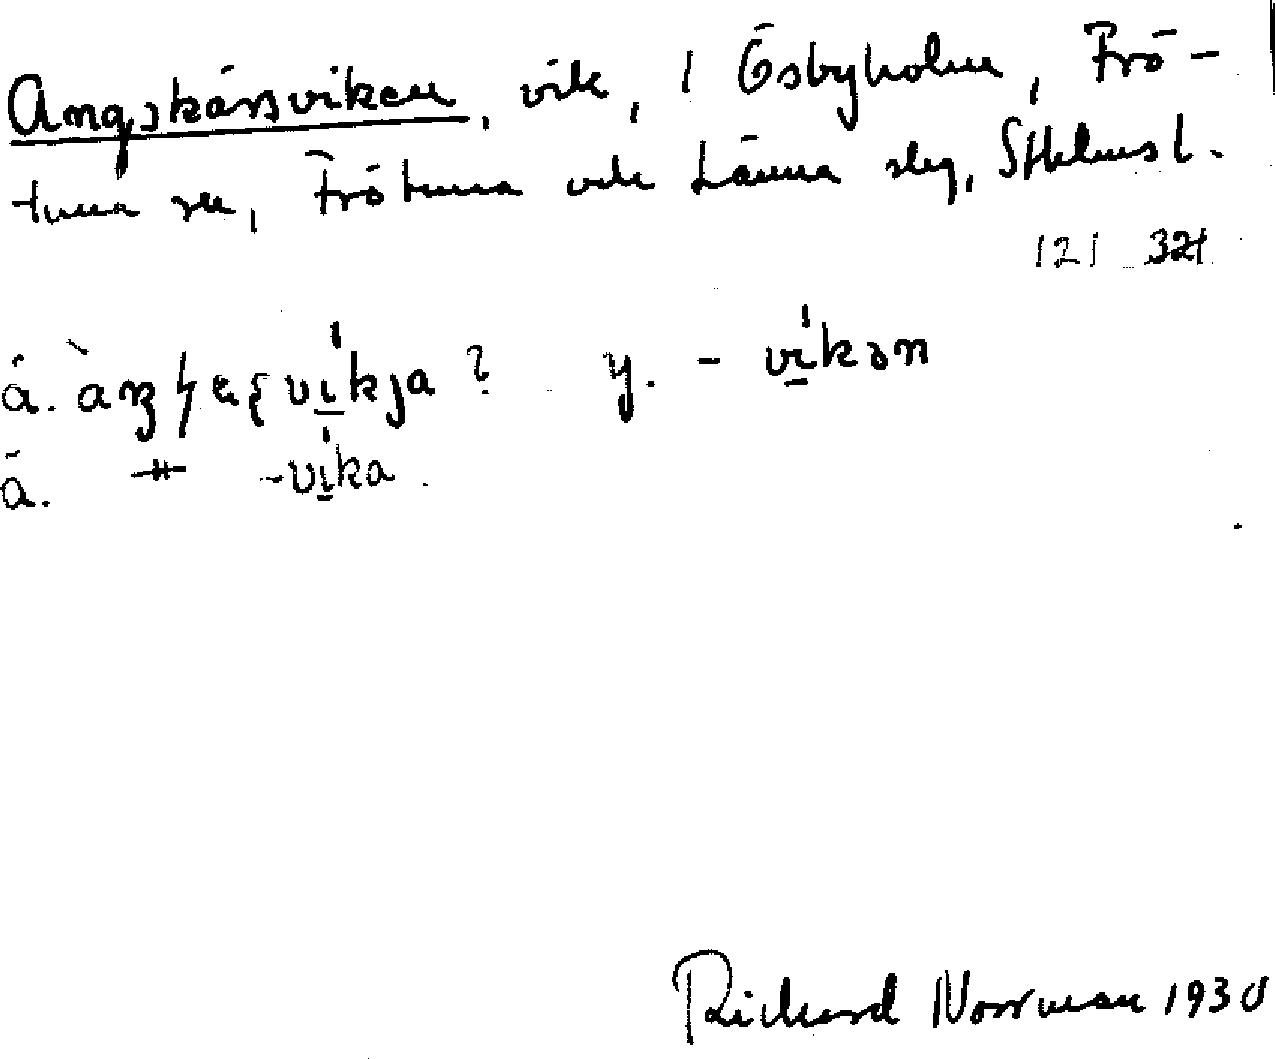 Ängskärsviken, vik, i Ösbyholm, Frö-
tuna sn, Frötuna och Länna slg, Sthlms l.
121 321
ä. y. - vikən
ä. -vika.
Richard Norrman 1930